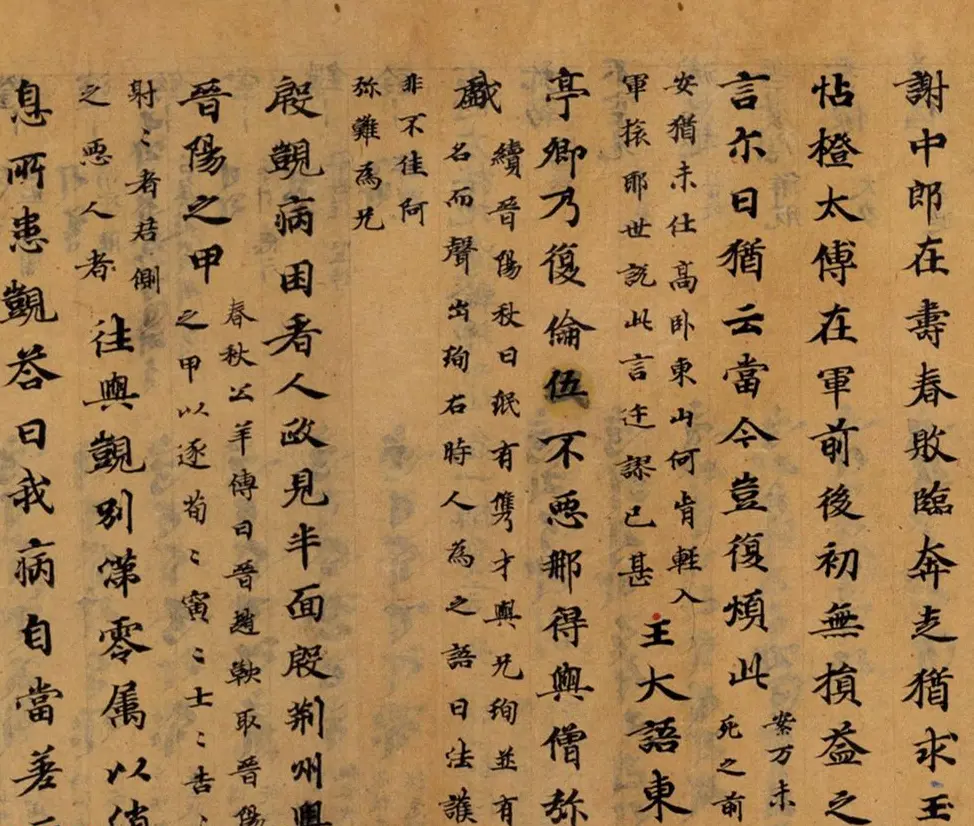 謝中郎在壽春敗臨奔走猶求玉
帖橙太傅在軍前後初無損益之
言尒日猶云當今豈復煩此
案万未
死之前
安猶未仕高卧東山何肯軽入
軍旅耶世説此言迂謬已甚
王大語東
亭卿乃復倫伍不悪郍得與僧弥
戯
續晉陽秋曰珉有儁才與兄珣並有
名而聲出珣右時人為之語曰法護
非不佳阿
弥難為兄
殷覬病困看人政見半面殷荊州興
晉陽之甲
春秋公羊傳曰晉趙鞅取晉陽
之甲以逐荀〻寅〻士〻吉〻
射〻者君側
之悪人者
往與覬別涕零属以消
息所患覬荅曰我病自當差